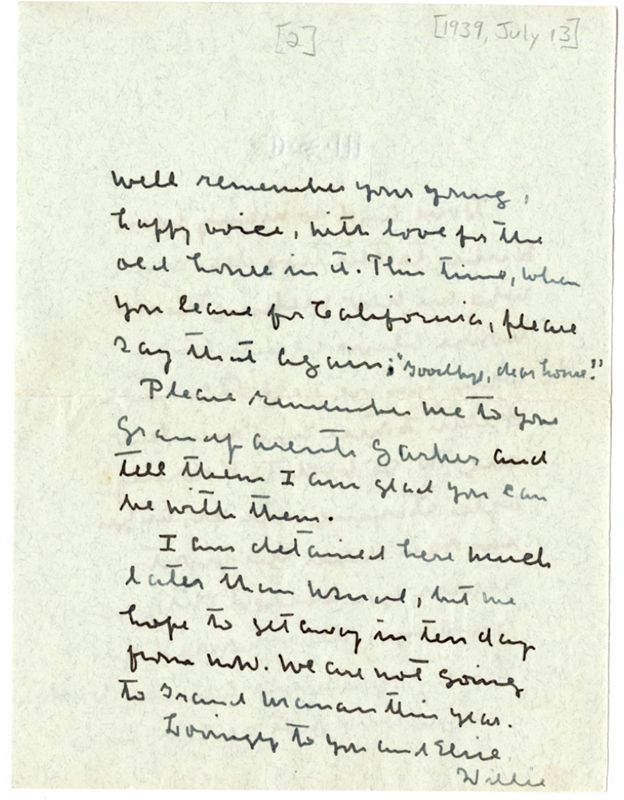 [2] [1939, July 13]
well remember your young,
happy voice, with love for the
old house in it. This time, when
you leave for California, please
say that again; "Goodbye, dear house!"
Please remember me to your
Grandparents and
tell them I am glad you can
be with them.
I am detained here much
later than usual, but we
hope to get away in ten days
from now. We are not going
to Grand Manan this year.
Lovingly to you and Elsie
Willie